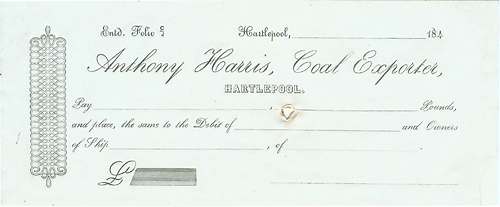 Entd. Folio Hartlepool, 184
Anthony Harris, Coal Exporter,
HARTLEPOOL.
Pay , Pounds,
and place, the same to the Debit of and Owners
of Ship , of
£